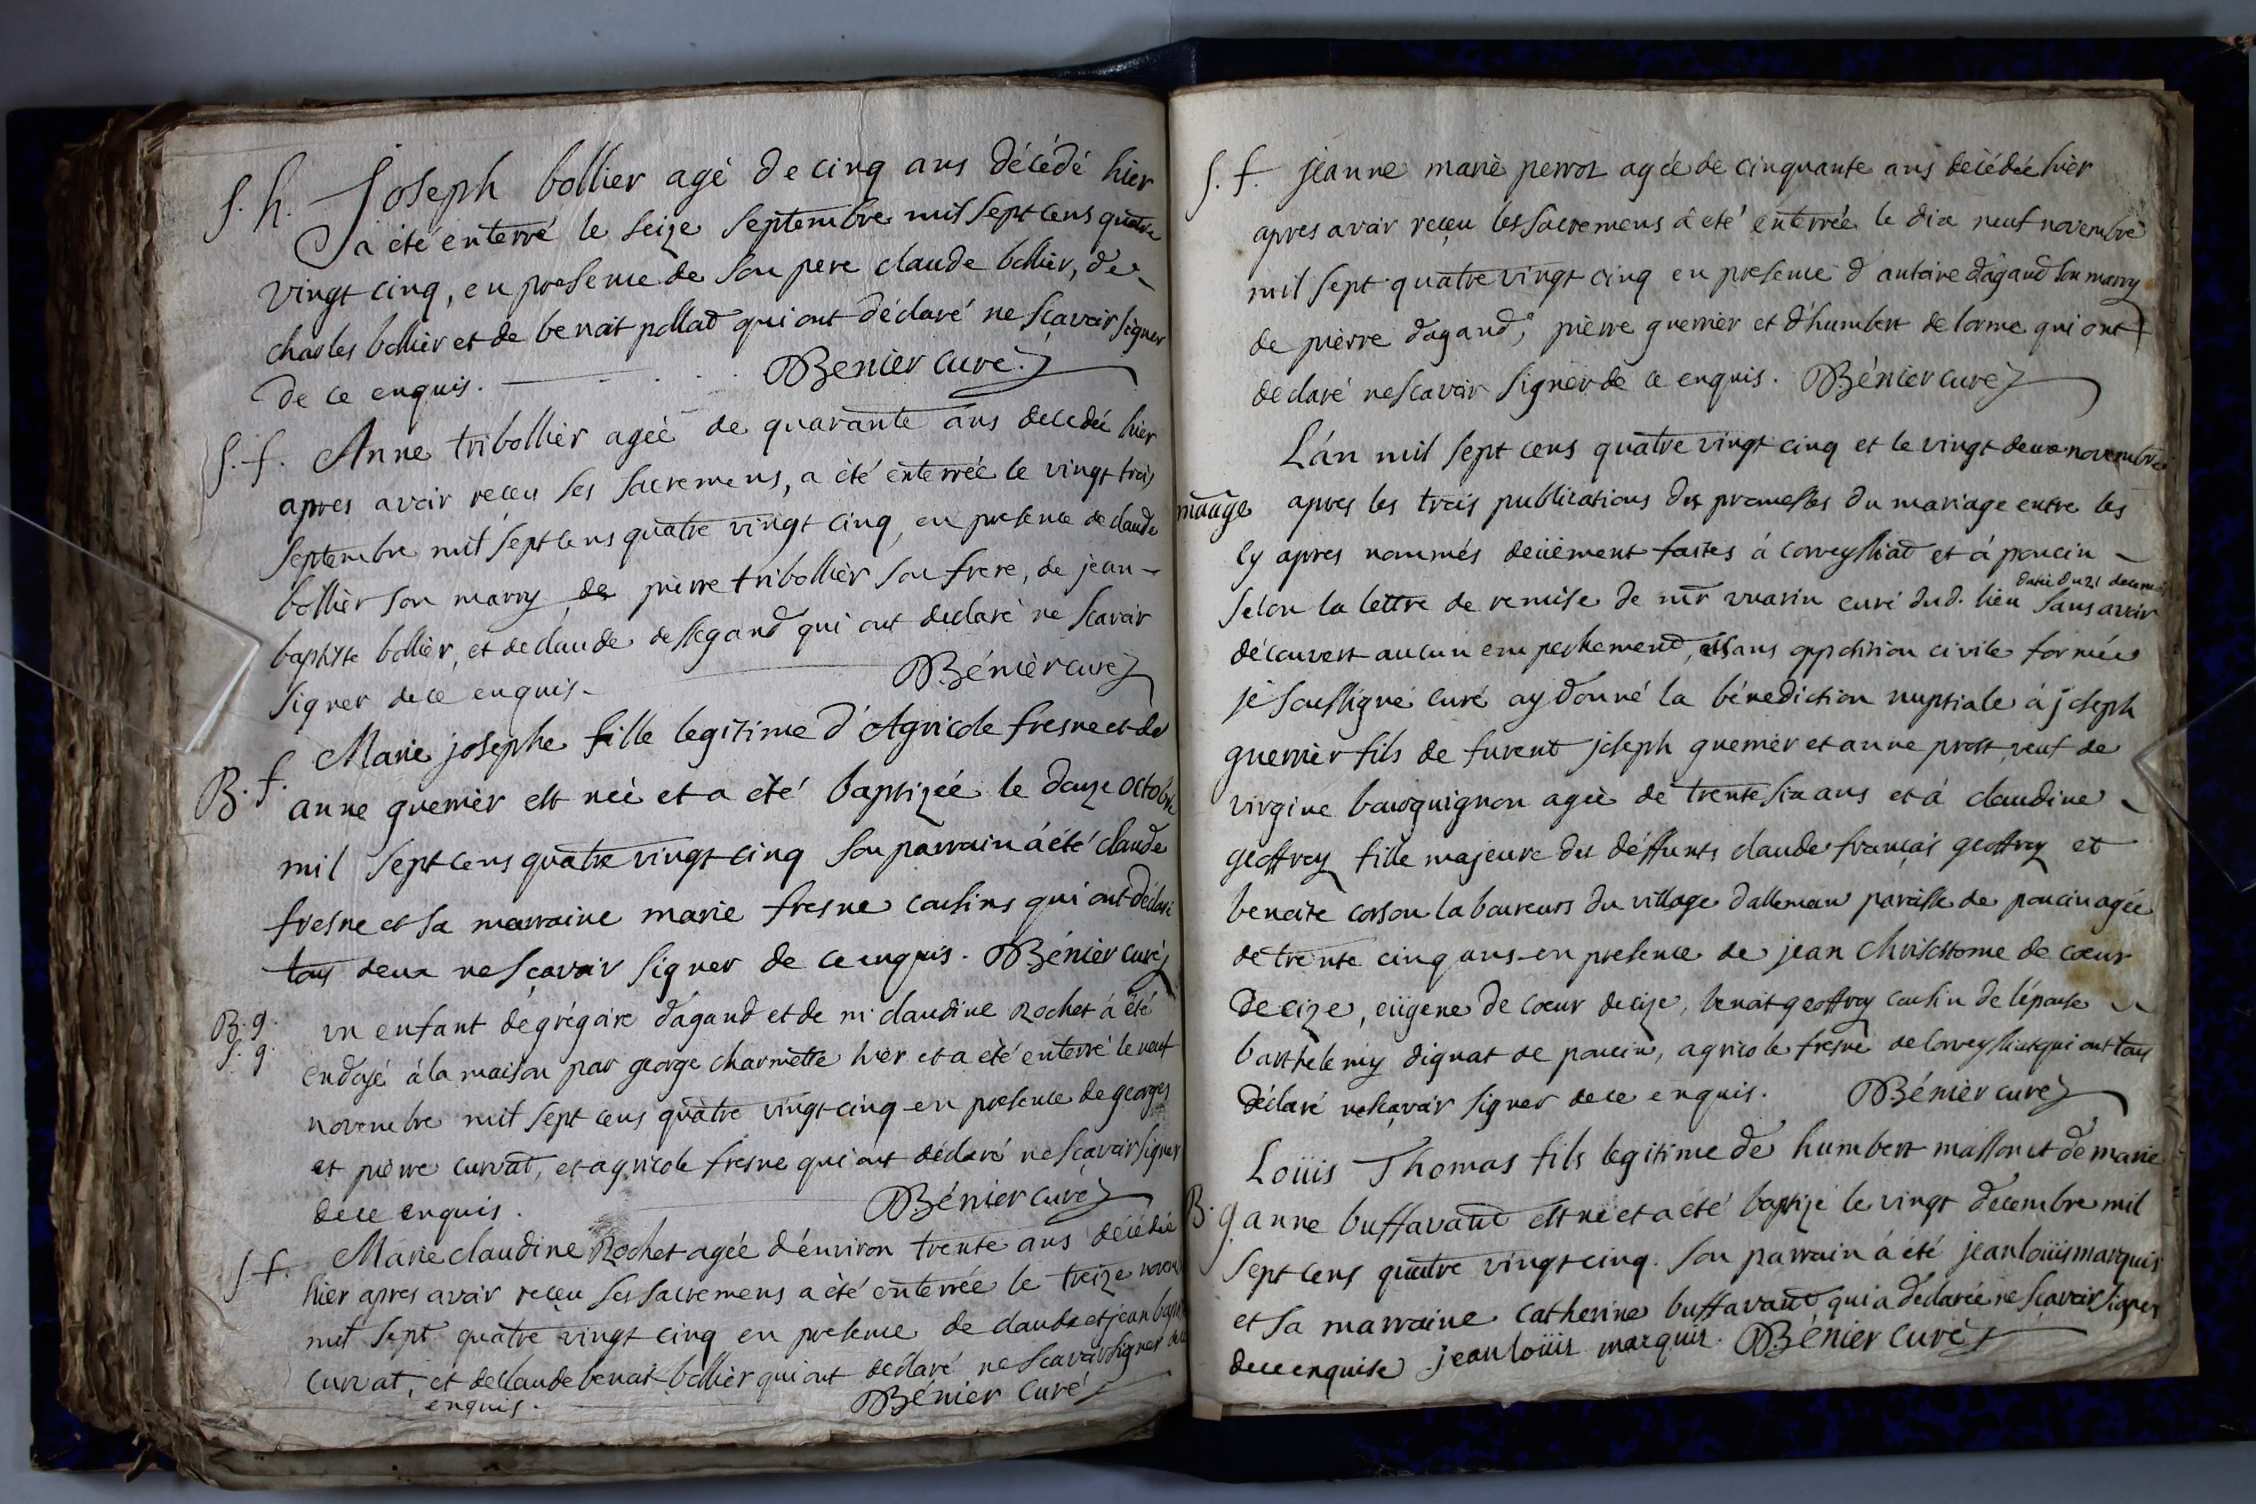 S. h. Joseph bollier agé de cinq ans décédé hier
a été enterré le seize septembre mil sept cens quatre
vingt cinq, en presence de son pere claude bollier, de
charles bollier et de benoit pollad qui ont déclaré ne scavoir signer
de ce enquis. Bénier curé
S. f. Anne tribollier agée de quarante ans decedée hier
apres avoir reçeu ses sacremens, a été enterrée le vingt trois
septembre mil sept cens quatre vingt cinq, en presence de claude
bollier son marry de pierre tribollier son frere, de jean
baptiste bollier, et de claude dessegand qui ont declaré ne scavoir
signer de ce enquis. Bénier curé
Marie josephe fille legitime d'Agricole fresne et de
B. f. anne guerrier est née et a été baptizée le douze octobre
mil sept cens quatre vingt cinq son parrain á été claude
fresne et sa marraine marie fresne cousins qui ont déclaré
tous deux ne sçavoir signer de ce enquis. Bénier curé
B. g. un enfant de grégoire dagand et de m claudine Rochet á été
S. g. endoyé á la maison par george charmette hier et a été enterré le neuf
novembre mil sept cens quatre vingt cinq en presence de georges
et pierre curvat, et agricole fresne qui ont déclaré ne sçavoir signer
de ce enquis. Bénier curé
S. f. Marie claudine Rochet agée d'environ trente ans décédée
hier apres avoir reçeu ses sacremens a été enterrée le treize novem
mil sept quatre vingt cinq en presence de claude et jean bapt
curvat, et de claude benoit bollier qui ont declaré ne scavoir signer de ce
enquis. Bénier curé
S. f. jeanne marie perrot agée de cinquante ans décédée hier
apres avoir reçeu les sacremens á été enterrée le dix neuf novembre
mil sept quatre vingt cinq en presence d'antoine dagand son marry
de pierre dagand, pierre guerrier et d'humbert delorme qui ont
declaré ne scavoir signer de ce enquis. Bénier curé
L'an mil sept cens quatre vingt cinq et le vingt deux novembre
mãage apres les trois publications des promesses du mariage entre les
cy apres nommés deüement faites á corveyssiat et á poncin
datée du 21
selon la lettre de remise de mr vuarin curé dud. lieu sans avoir
découvert aucun empechement, et sans opposition civile formée
je soussigné curé ay donné la bénediction nuptiale á joseph
guerrier fils de furent joseph guerrier et anne prost, veuf de
virgine bourguignon agée de trente six ans et á claudine
geoffray fille majeure des déffunts claude françois geoffray et
benoite corson laboureurs du village dalleman paroisse de poncin agée
de trente cinq ans en presence de jean chrisostome de coeur
de cize, eiigene de coeur de cize, benoit geoffray cousin de l'épouse
barthelemy dignat de poncin, agricole fresne de corveyssiat qui ont tous
déclaré ne sçavoir signer de ce enquis. Bénier curé
Loüis Thomas fils legitime de humbert masson et de marie
B. g. anne buffavand est né et a été baptizé le vingt decembre mil
sept cens quatre vingt cinq. son parrain á été jean loüis marquis
et sa marraine catherine buffavand qui a declarée ne scavoir signer
de ce enquise jean loüis marquis. Bénier curé